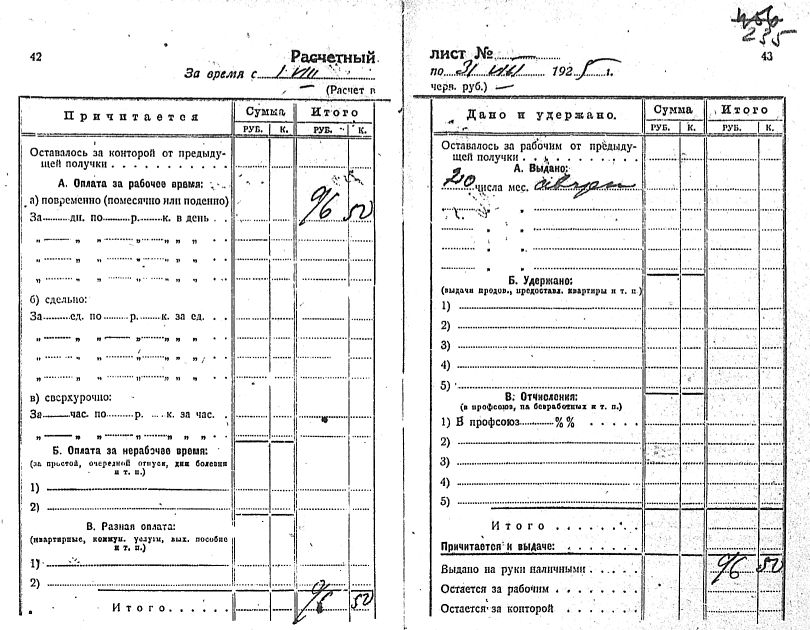 235
42
Расчетный
За время с 1 VIII
(Расчет в
Причитается
Сумма
Итого
РУБ. К. РУБ. К.
Оставалось за конторой от предыду-
щей получки
А. Оплата за рабочее время:
а) повременно (помесячно или поденно)
96 50
За дн. по р. к. в день
„ „ „ „ „ „ „
„ „ „ „ „ „ „
„ „ „ „ „ „ „
б) сдельно:
За ед. по р. к. за ед.
„ „ „ „ „ „ „
„ „ „ „ „ „ „
„ „ „ „ „ „ „
в) сверхурочно:
За час. по р. к. за час.
„ „ „ „ „ „ „
Б. Оплата за нерабочее время:
(за простой, очередной отпуск, дни болезни
и т. п.)
1)
2)
В. Разная оплата:
(квартирные, коммун. услуги, вых. пособие
и т. п.)
1)
2)
Итого 96 50
ЛИСТ №
43
по 31 VIII 1925 г.
черв. руб.) —
Дано и удержано.
Сумма
Итого
РУБ. К. РУБ. К.
Оставалось за рабочим от предыду-
щей получки
А. Выдано:
20 числа мес.
„ „
„ „
„ „
„ „
Б. Удержано:
(выдачи продов., предоставл. квартиры и т. п.)
1)
2)
3)
4)
5)
В. Отчисления:
(в профсоюз, на безработных и т. п.)
1) В профсоюз %%
2)
3)
4)
5)
Итого
Причитается к выдаче:
Выдано на руки наличными 96 50
Остается за рабочим
Остается за конторой